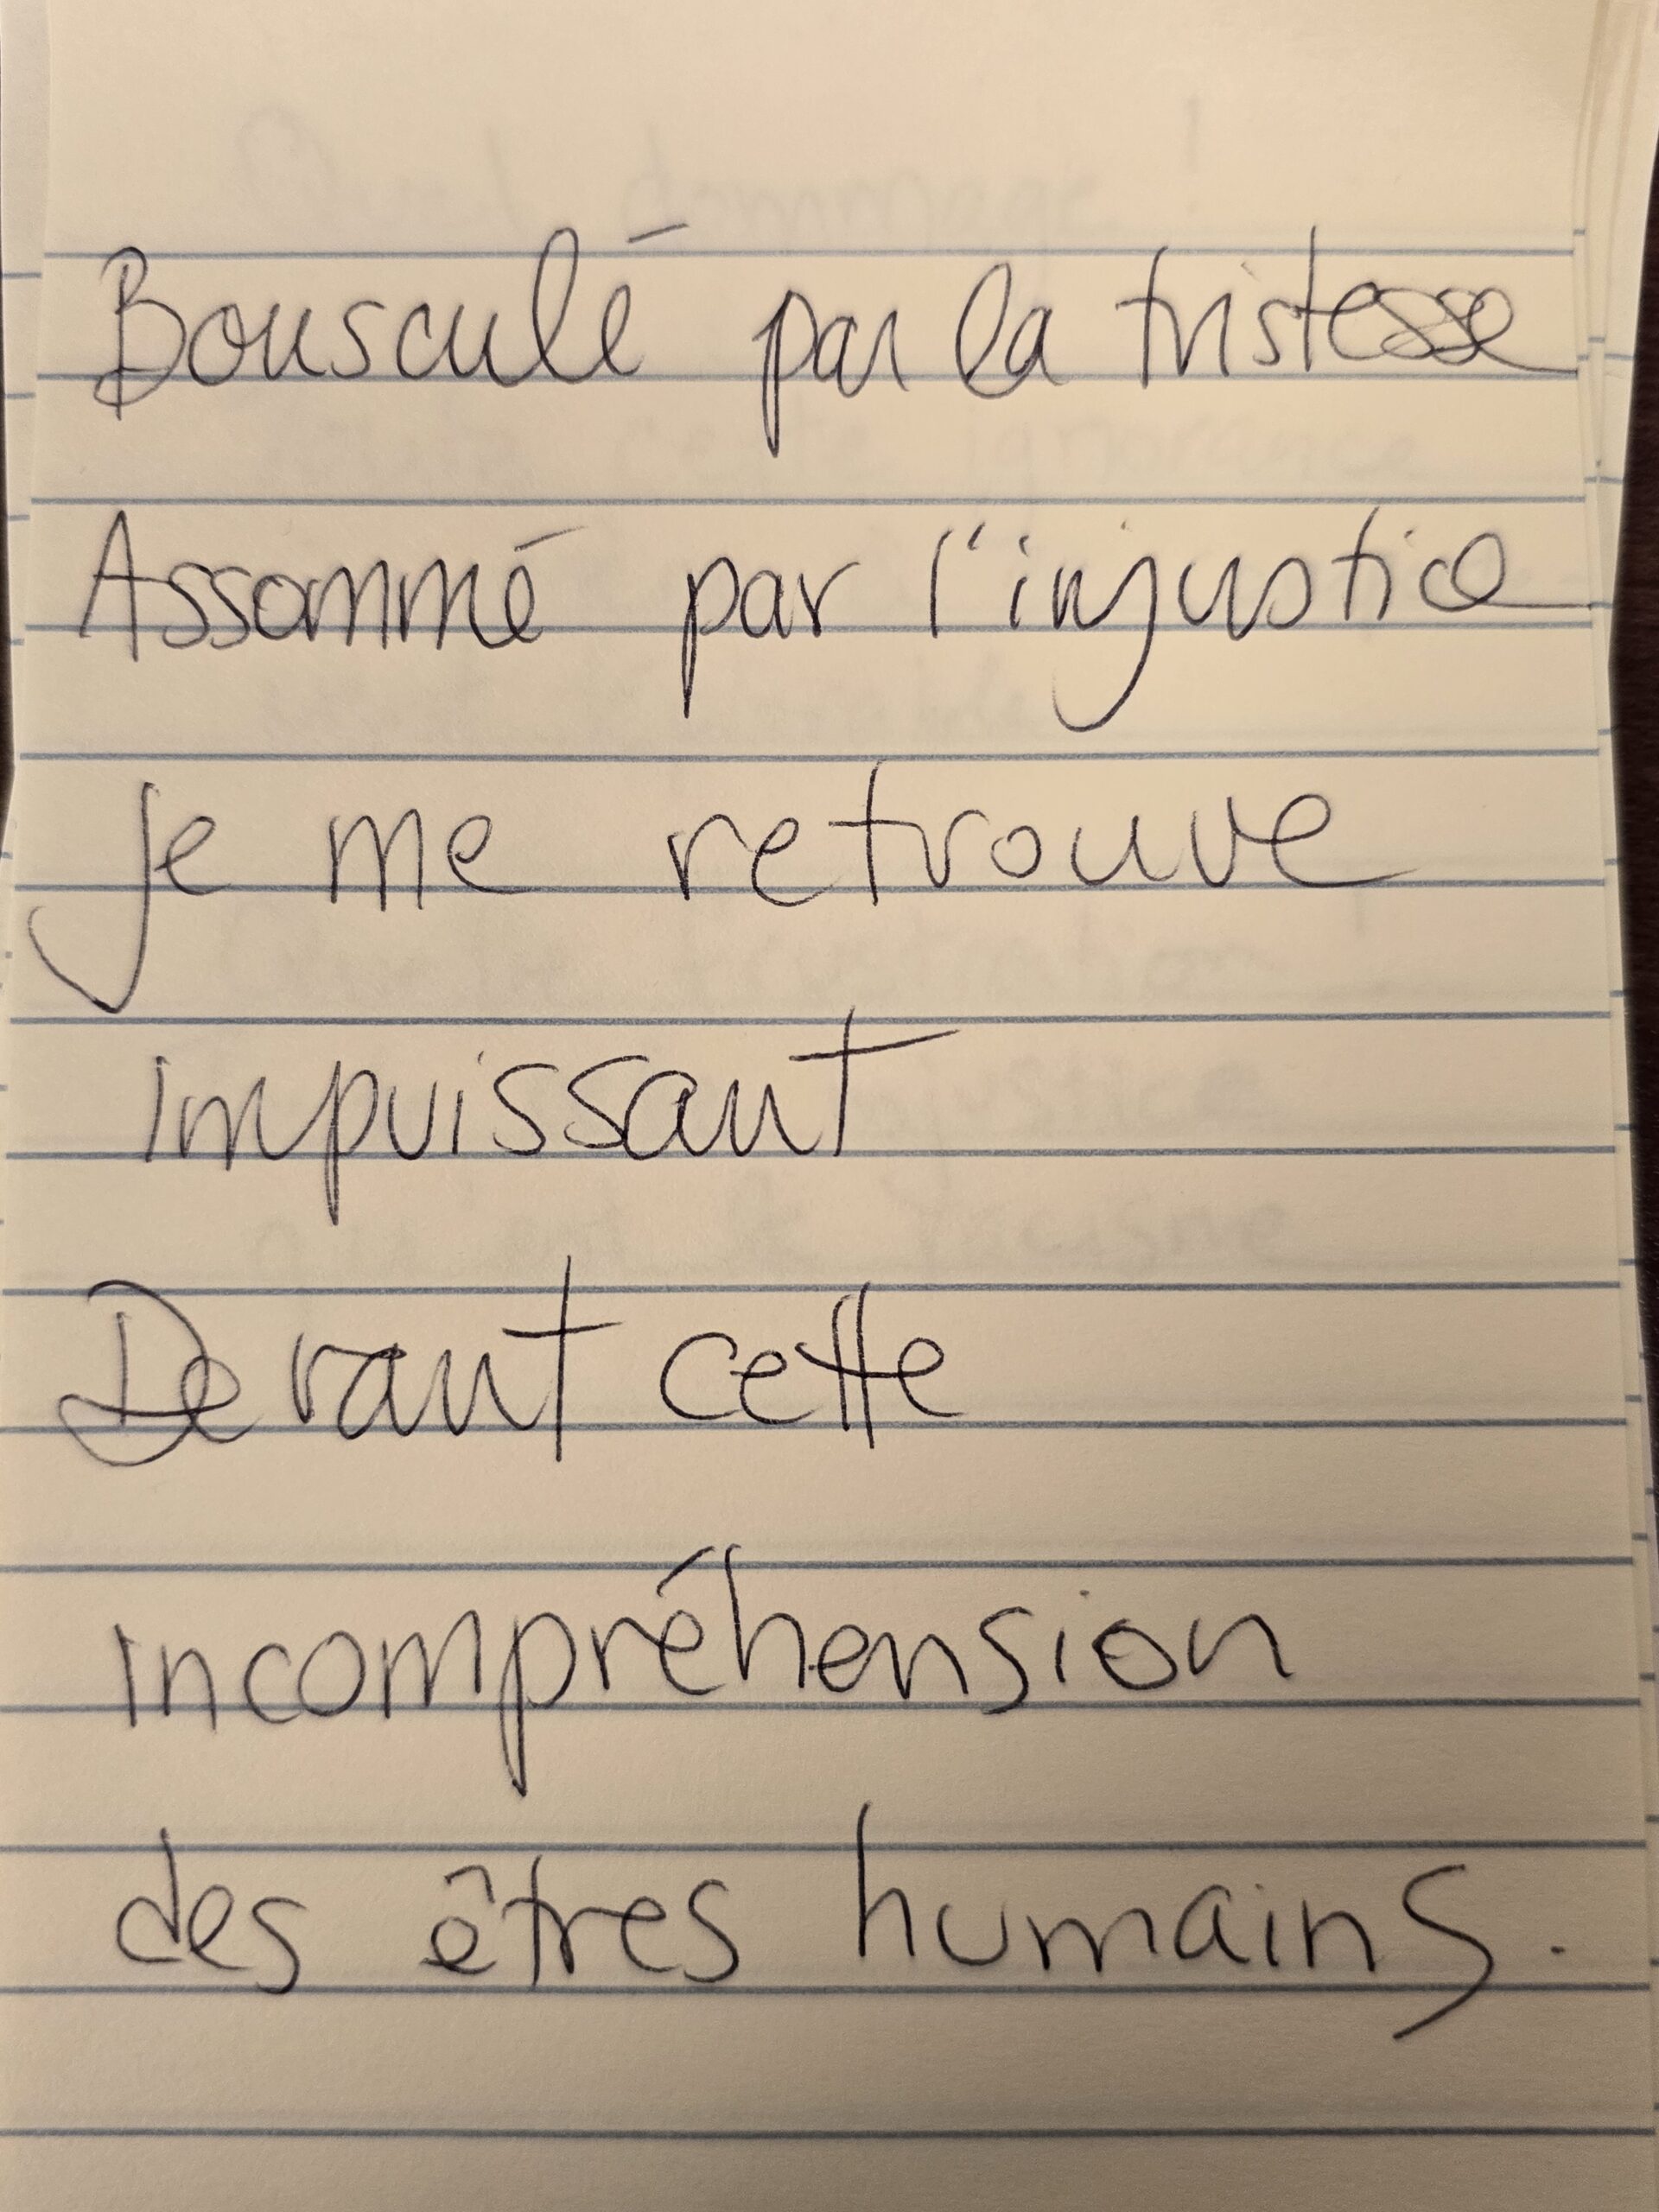 Bousculé par la tristesse
Assommé par l'injustice
je me retrouve
impuissant
Devant cette
incompréhension
des êtres humains.